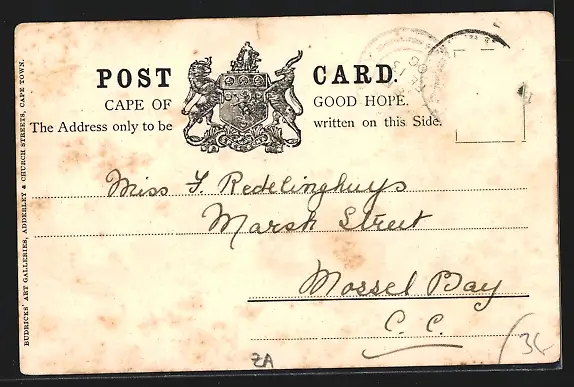 POST CARD.
CAPE OF GOOD HOPE.
The Address only to be written on this Side.
Miss F. Redelinghuys
Marsh Street
Mossel Bay
C. C.
BUDRICKS' ART GALLERIES, ADDERLEY & CHURCH STREETS, CAPE TOWN.
ZA